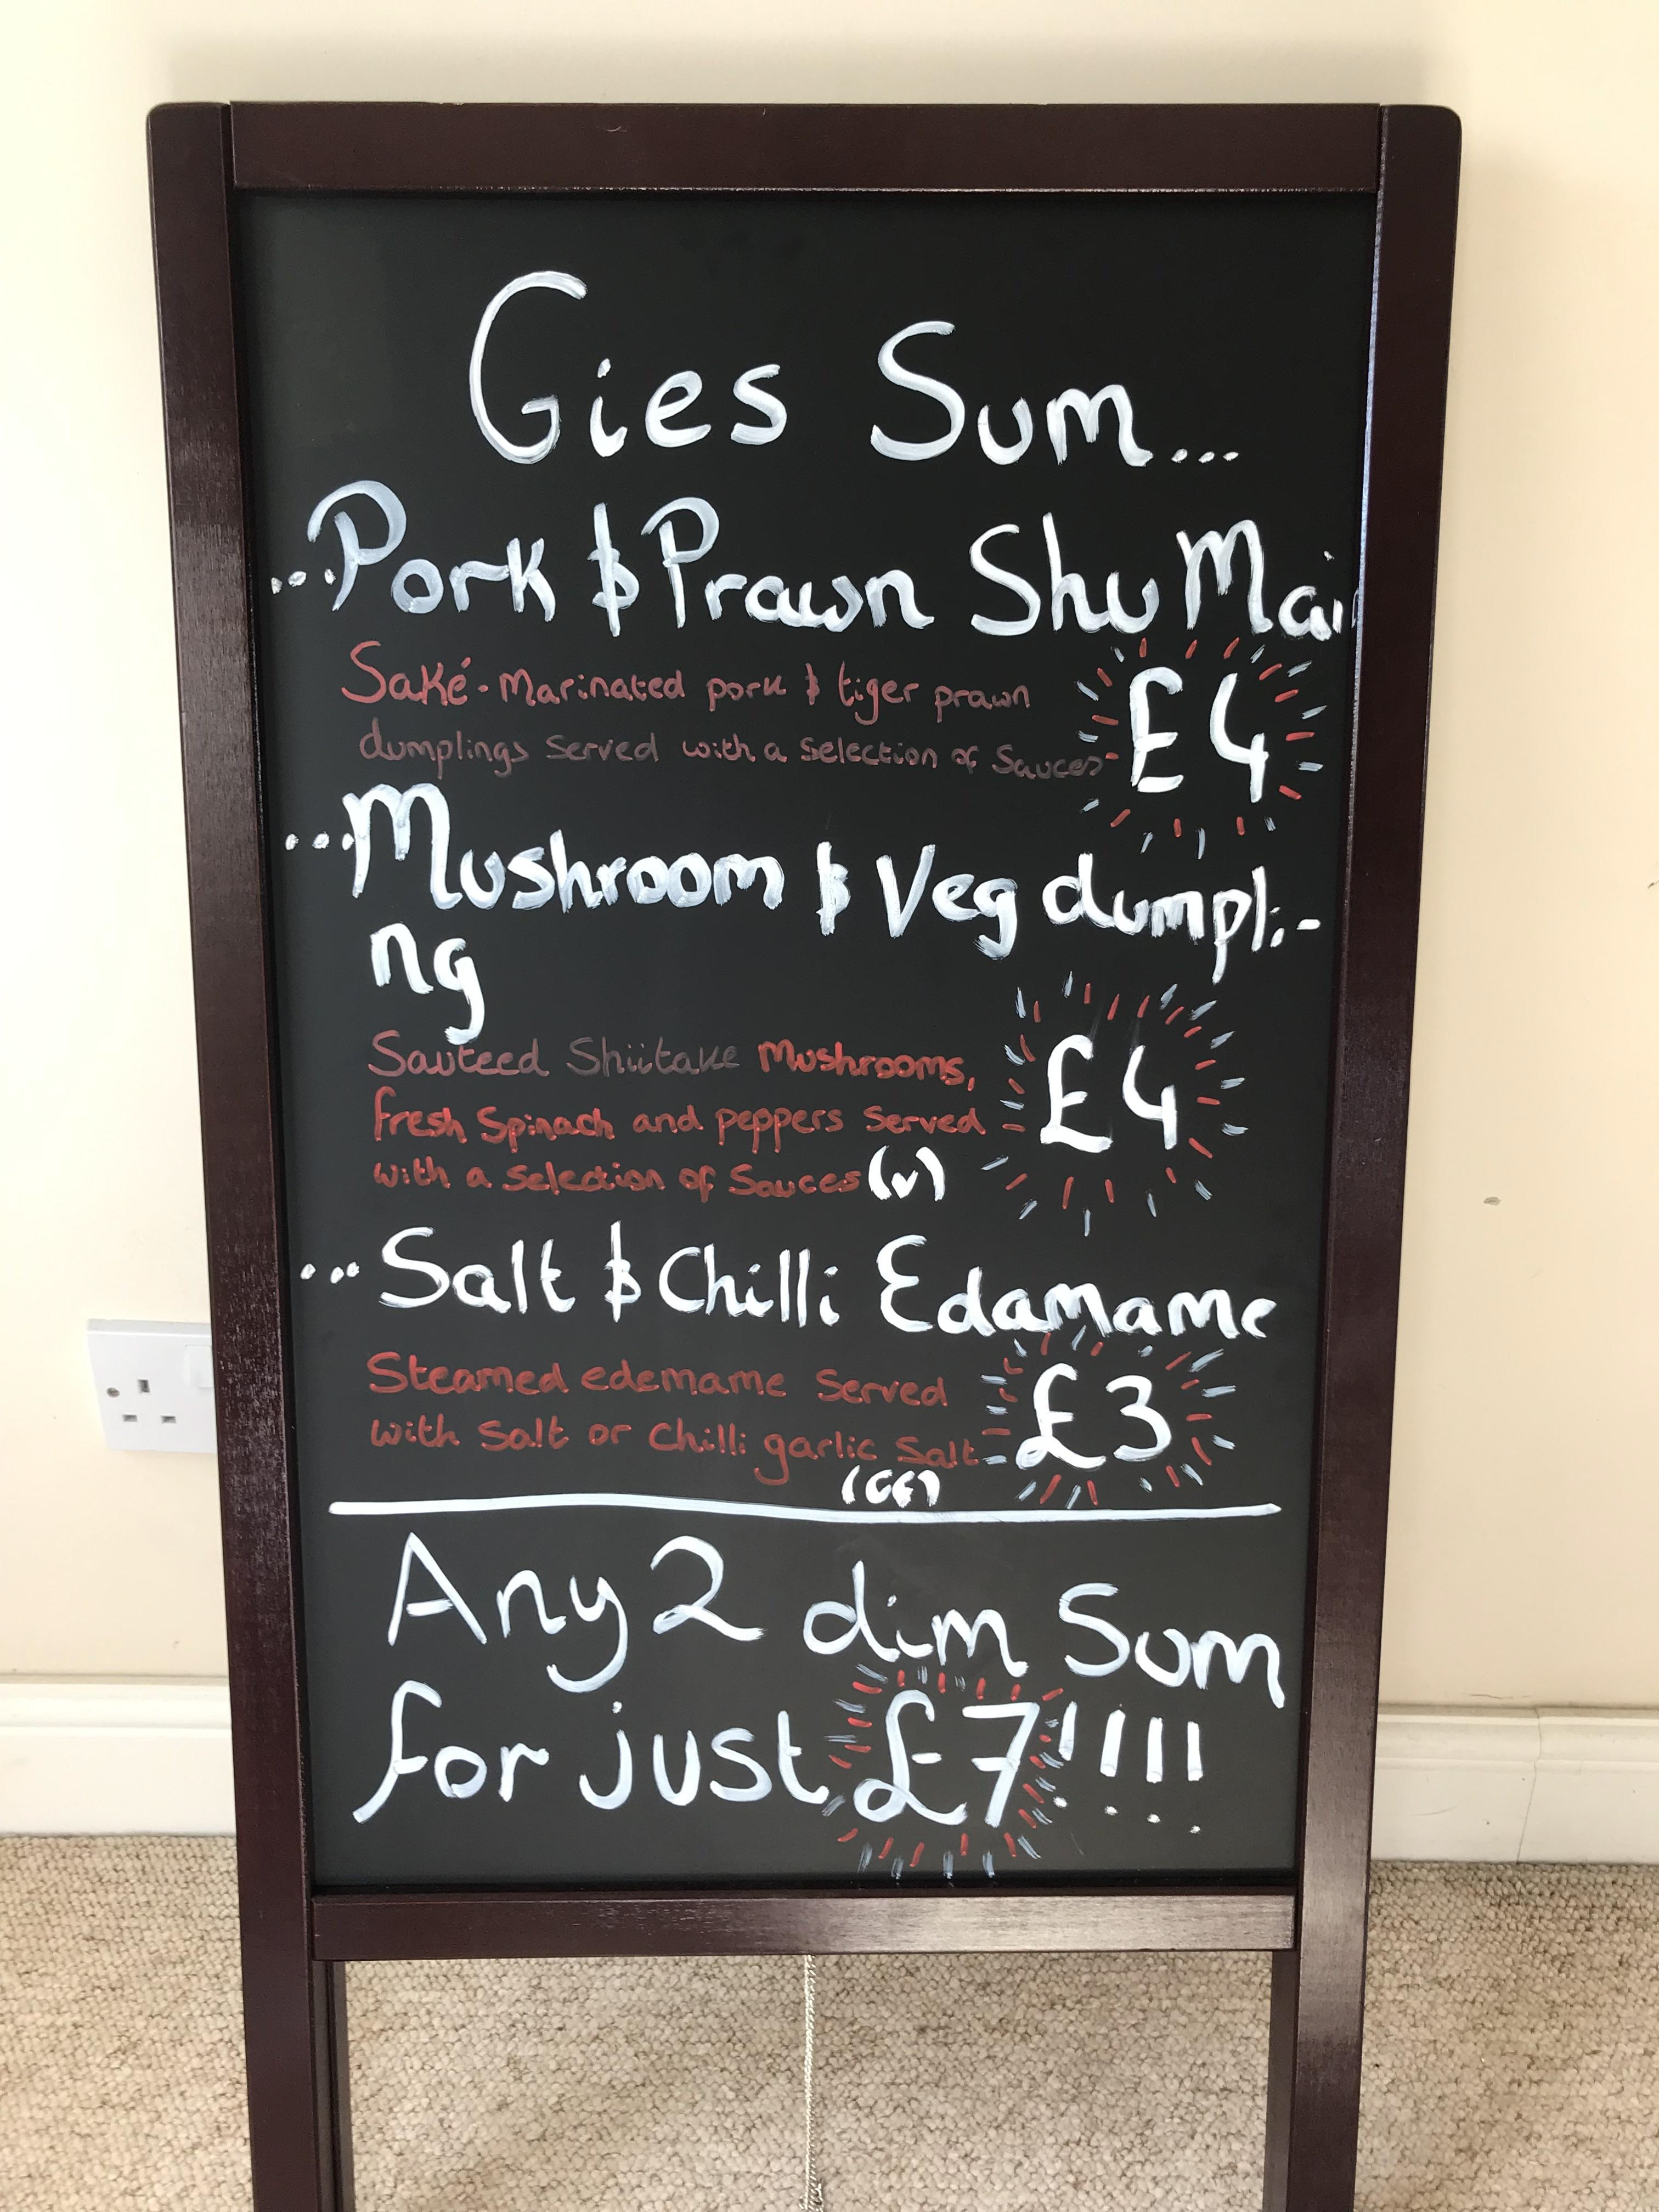 Gies Sum...
...Pork & Prawn Shu Mai
Saké-Marinated pork & tiger prawn
dumplings Served with a Selection of Sauces
£4
...Mushroom & Veg dumpli-
ng
Sauteed Shiitake Mushrooms,
fresh Spinach and peppers Served
with a Selection of Sauces (v)
£4
...Salt & Chilli Edamame
Steamed edemame Served
with Salt or Chilli garlic Salt
(GF)
£3
Any 2 dim Sum
for just £7!!!!